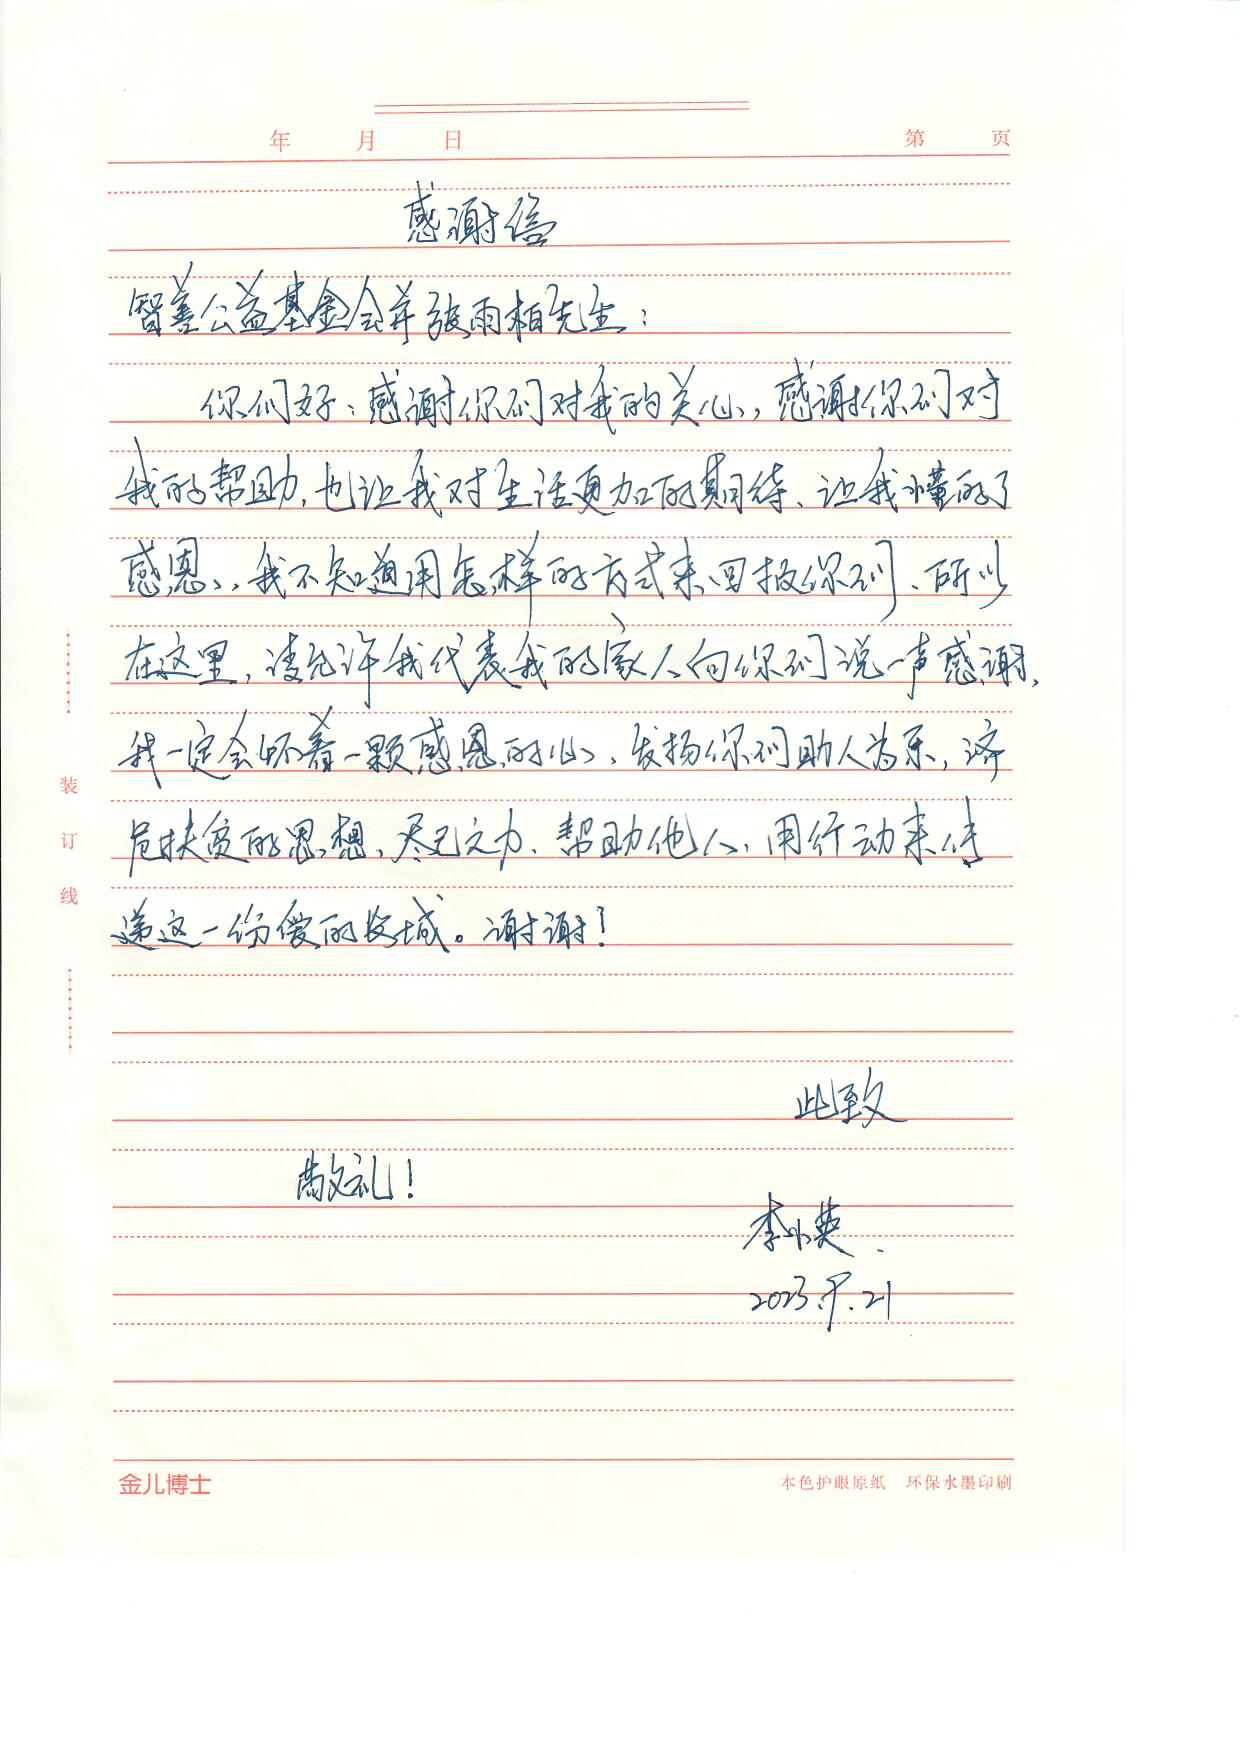 年 月 日 第 页
感谢信
智善公益基金会并张雨柏先生：
你们好：感谢你们对我的关心，感谢你们对
我的帮助，也让我对生活更加的期待、让我懂的了
感恩，我不知道用怎样的方式来回报你们、所以
在这里，请允许我代表我的家人向你们说一声感谢，
我一定会怀着一颗感恩的心、发扬你们助人为乐，济
危扶贫的思想、尽己之力、帮助他人、用行动来传
递这一份爱的。谢谢！
此致
敬礼！
李小英
2023.9.21
装订线
金儿博士 本色护眼原纸 环保水墨印刷